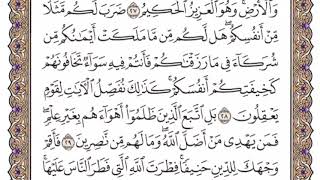 وَٱلْأَرْضِ ۚ وَهُوَ ٱلْعَزِيزُ ٱلْحَكِيمُ ٢٧ ضَرَبَ لَكُم مَّثَلًا
مِّنْ أَنفُسِكُمْ ۖ هَل لَّكُم مِّن مَّا مَلَكَتْ أَيْمَٰنُكُم مِّن
شُرَكَآءَ فِى مَا رَزَقْنَٰكُمْ فَأَنتُمْ فِيهِ سَوَآءٌ تَخَافُونَهُمْ
كَخِيفَتِكُمْ أَنفُسَكُمْ ۚ كَذَٰلِكَ نُفَصِّلُ ٱلْءَايَٰتِ لِقَوْمٍ
يَعْقِلُونَ ٢٨ بَلِ ٱتَّبَعَ ٱلَّذِينَ ظَلَمُوٓا۟ أَهْوَآءَهُم بِغَيْرِ عِلْمٍ ۖ
فَمَن يَهْدِى مَنْ أَضَلَّ ٱللَّهُ ۖ وَمَا لَهُم مِّن نَّٰصِرِينَ ٢٩ فَأَقِمْ
وَجْهَكَ لِلدِّينِ حَنِيفًا ۚ فِطْرَتَ ٱللَّهِ ٱلَّتِى فَطَرَ ٱلنَّاسَ عَلَيْهَا ۚ